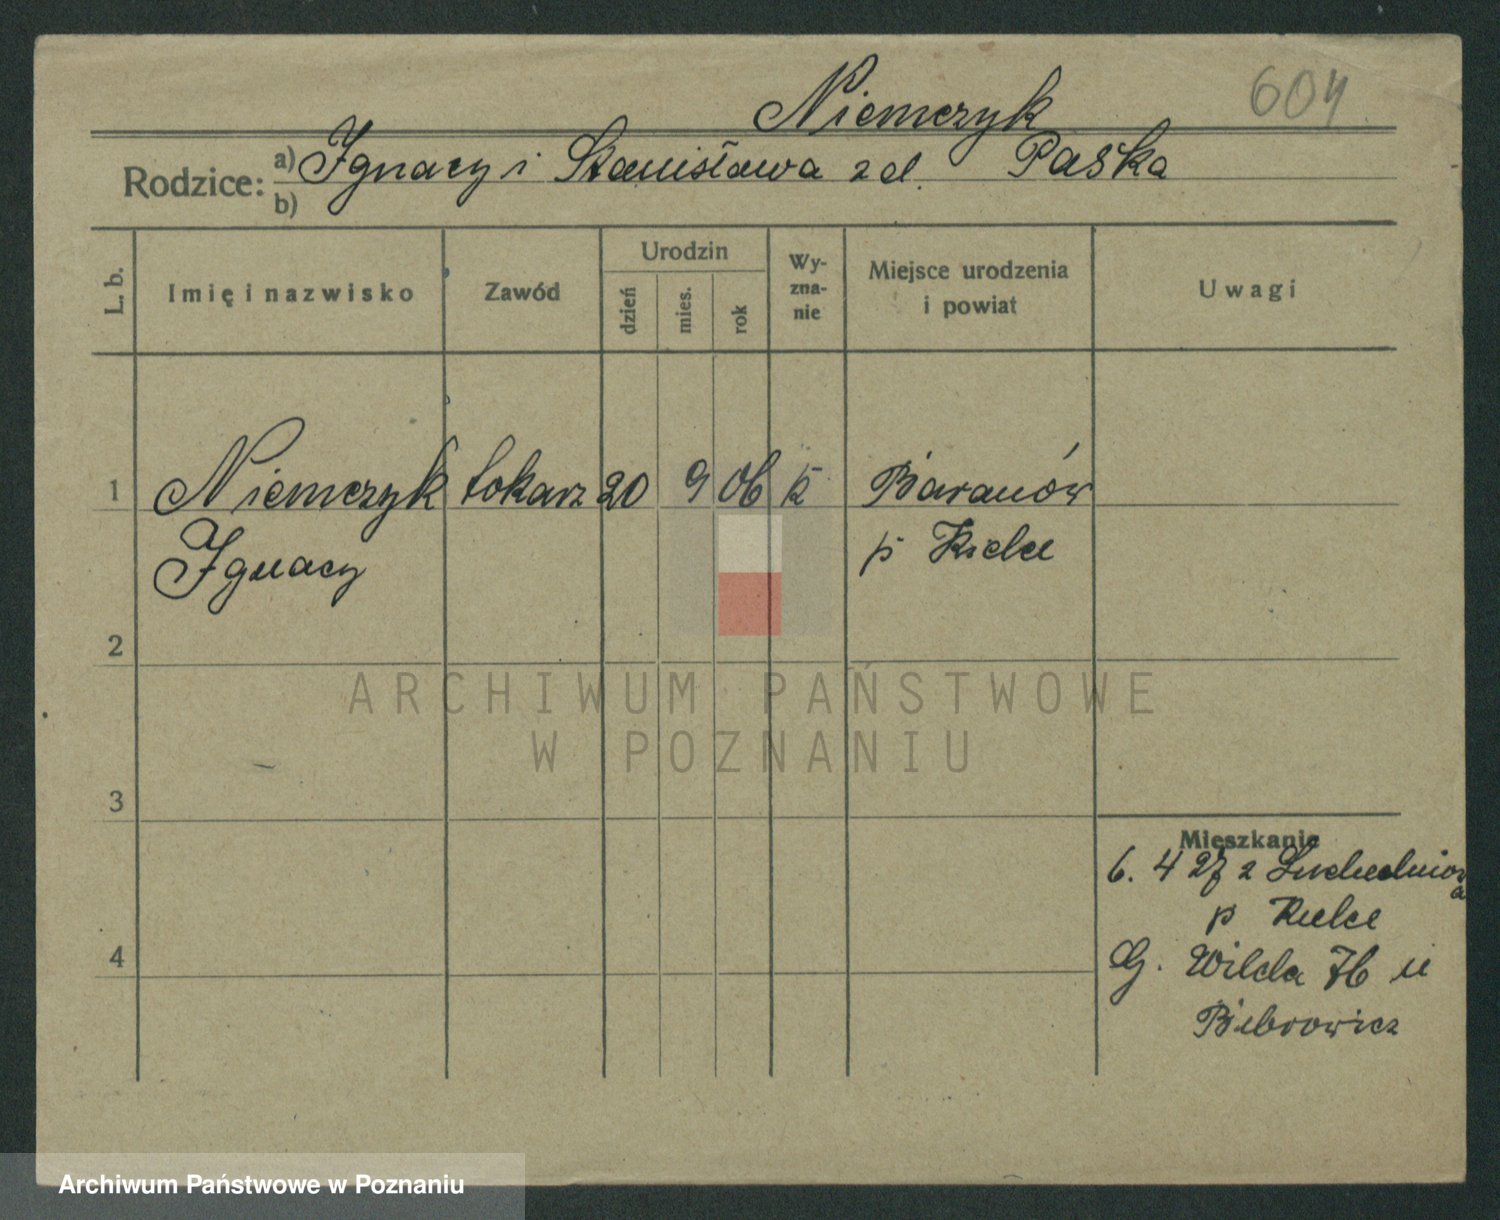 604
Niemczyk
Rodzice: a) Ignacy i Stanisława z d. Paska
b)
L. b. Imię i nazwisko Zawód Urodzin dzień mies. rok Wyznanie Miejsce urodzenia i powiat Uwagi
1 Niemczyk tokarz 20 9 06 k Baranów
Ignacy p Kielce
2
ARCHIWUM PAŃSTWOWE
W POZNANIU
3
Mieszkanie
6. 4 27 z Suchedniowa
p Kielce
4
G. Wilda 76 u
Bibrowicz
Archiwum Państwowe w Poznaniu